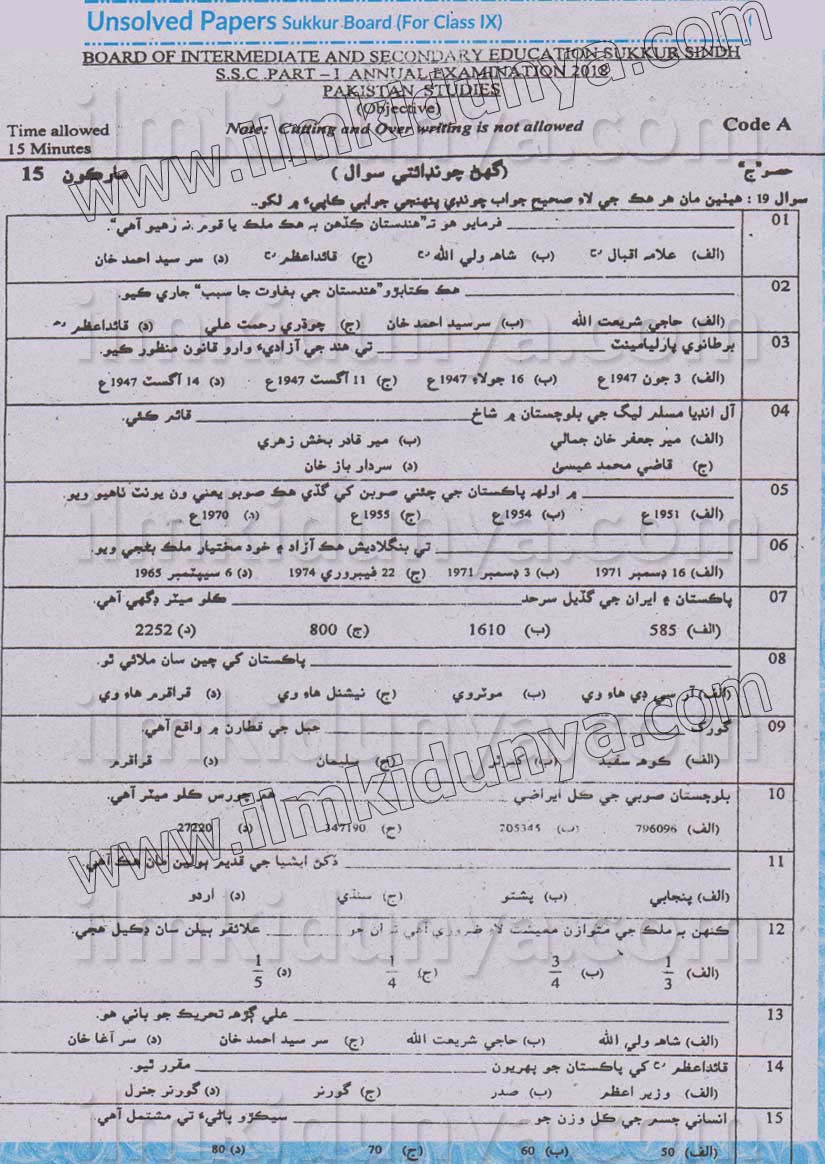 Unsolved Papers Sukkur Board (For Class IX)
BOARD OF INTERMEDIATE AND SECONDARY EDUCATION SUKKUR SINDH
S.S.C PART – I ANNUAL EXAMINATION 2018
PAKISTAN STUDIES
(Objective)
Time allowed Note: Cutting and Over writing is not allowed Code A
15 Minutes
حصو "ج" (گھڻ چونڊائتي سوال) مارڪون 15
سوال 19 : هيٺين مان هر هڪ جي لاءِ صحيح جواب چونڊي پنهنجي جوابي ڪاپيءَ ۾ لکو..
01 ____________ فرمايو هو تہ "هندستان ڪڏهن بہ هڪ ملڪ يا قوم نہ رهيو آهي".
(الف) علامہ اقبال رح (ب) شاھ ولي الله رح (ج) قائداعظم رح (د) سر سيد احمد خان
02 ____________ هڪ ڪتابڙو "هندستان جي بغاوت جا سبب" جاري ڪيو.
(الف) حاجي شريعت الله (ب) سرسيد احمد خان (ج) چوڌري رحمت علي (د) قائداعظم رح
03 برطانوي پارليامينٽ ____________ تي هند جي آزاديءَ وارو قانون منظور ڪيو.
(الف) 3 جون 1947ع (ب) 16 جولاءِ 1947ع (ج) 11 آگسٽ 1947ع (د) 14 آگسٽ 1947ع
04 آل انڊيا مسلم ليگ جي بلوچستان ۾ شاخ ____________ قائم ڪئي.
(الف) مير جعفر خان جمالي (ب) مير قادر بخش زهري
(ج) قاضي محمد عيسيٰ (د) سردار باز خان
05 ____________ ۾ اولھ پاڪستان جي چئني صوبن کي گڏي هڪ صوبو يعني ون يونٽ ٺاهيو ويو.
(الف) 1951ع (ب) 1954ع (ج) 1955ع (د) 1970ع
06 ____________ تي بنگلاديش هڪ آزاد ۽ خود مختيار ملڪ بڻجي ويو.
(الف) 16 ڊسمبر 1971 (ب) 3 ڊسمبر 1971 (ج) 22 فيبروري 1974 (د) 6 سيپٽمبر 1965
07 پاڪستان ۽ ايران جي گڏيل سرحد ____________ ڪلو ميٽر ڊگهي آهي.
(الف) 585 (ب) 1610 (ج) 800 (د) 2252
08 ____________ پاڪستان کي چين سان ملائي ٿو.
(الف) آر سي ڊي هاءِ وي (ب) موٽروي (ج) نيشنل هاءِ وي (د) قراقرم هاءِ وي
09 گورک ____________ جبل جي قطارن ۾ واقع آهي.
(الف) ڪوهہ سفيد (ب) کيرٿر (ج) سليمان (د) قراقرم
10 بلوچستان صوبي جي ڪل ايراضي ____________ هم چورس ڪلو ميٽر آهي.
(الف) 796096 (ب) 705345 (ج) 347190 (د) 27220
11 ____________ ڏکڻ ايشيا جي قديم ٻولين مان هڪ آهي.
(الف) پنجابي (ب) پشتو (ج) سنڌي (د) اردو
12 ڪنهن بہ ملڪ جي متوازن معيشت لاءِ ضروري آهي تہ ان جو ____________ علائقو ٻيلن سان ڍڪيل هجي.
(الف) 1/3 (ب) 3/4 (ج) 1/4 (د) 1/5
13 ____________ علي ڳڙھ تحريڪ جو باني هو.
(الف) شاھ ولي الله (ب) حاجي شريعت الله (ج) سر سيد احمد خان (د) سر آغا خان
14 قائداعظم رح کي پاڪستان جو پهريون ____________ مقرر ٿيو.
(الف) وزير اعظم (ب) صدر (ج) گورنر (د) گورنر جنرل
15 انساني جسم جي ڪل وزن جو ____________ سيڪڙو پاڻيءَ تي مشتمل آهي.
(الف) 50 (ب) 60 (ج) 70 (د) 80
www.ilmkidunya.com
www.ilmkidunya.com
ilmkidunya.com
ilmkidunya.com
ilmkidunya.com
ilmkidunya.com
ilmkidunya.com
ilmkidunya.com